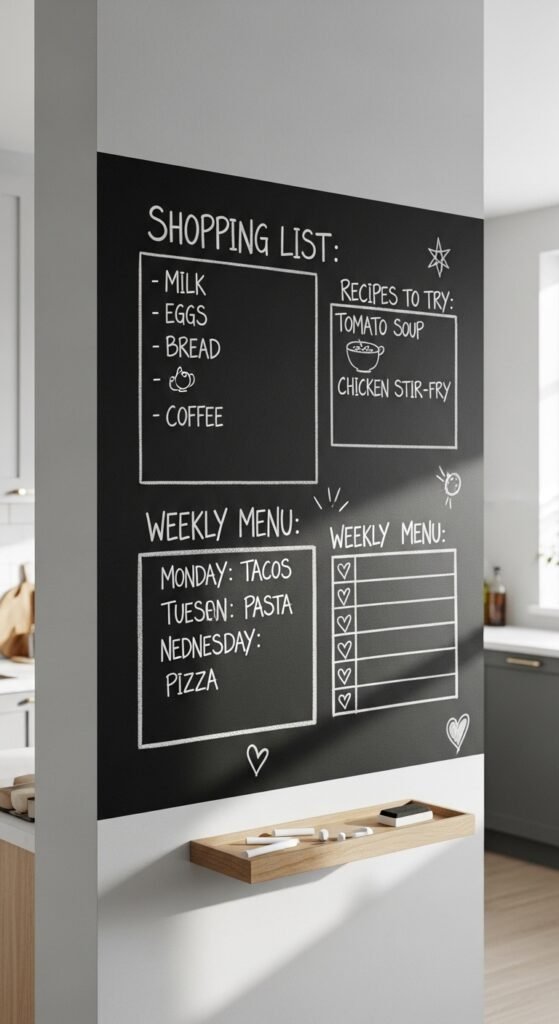 SHOPPING LIST:
- MILK
- EGGS
- BREAD
-
- COFFEE
RECIPES TO TRY:
TOMATO SOUP
CHICKEN STIR-FRY
WEEKLY MENU:
MONDAY: TACOS
TUESEN: PASTA
NEDNESDAY:
PIZZA
WEEKLY MENU: